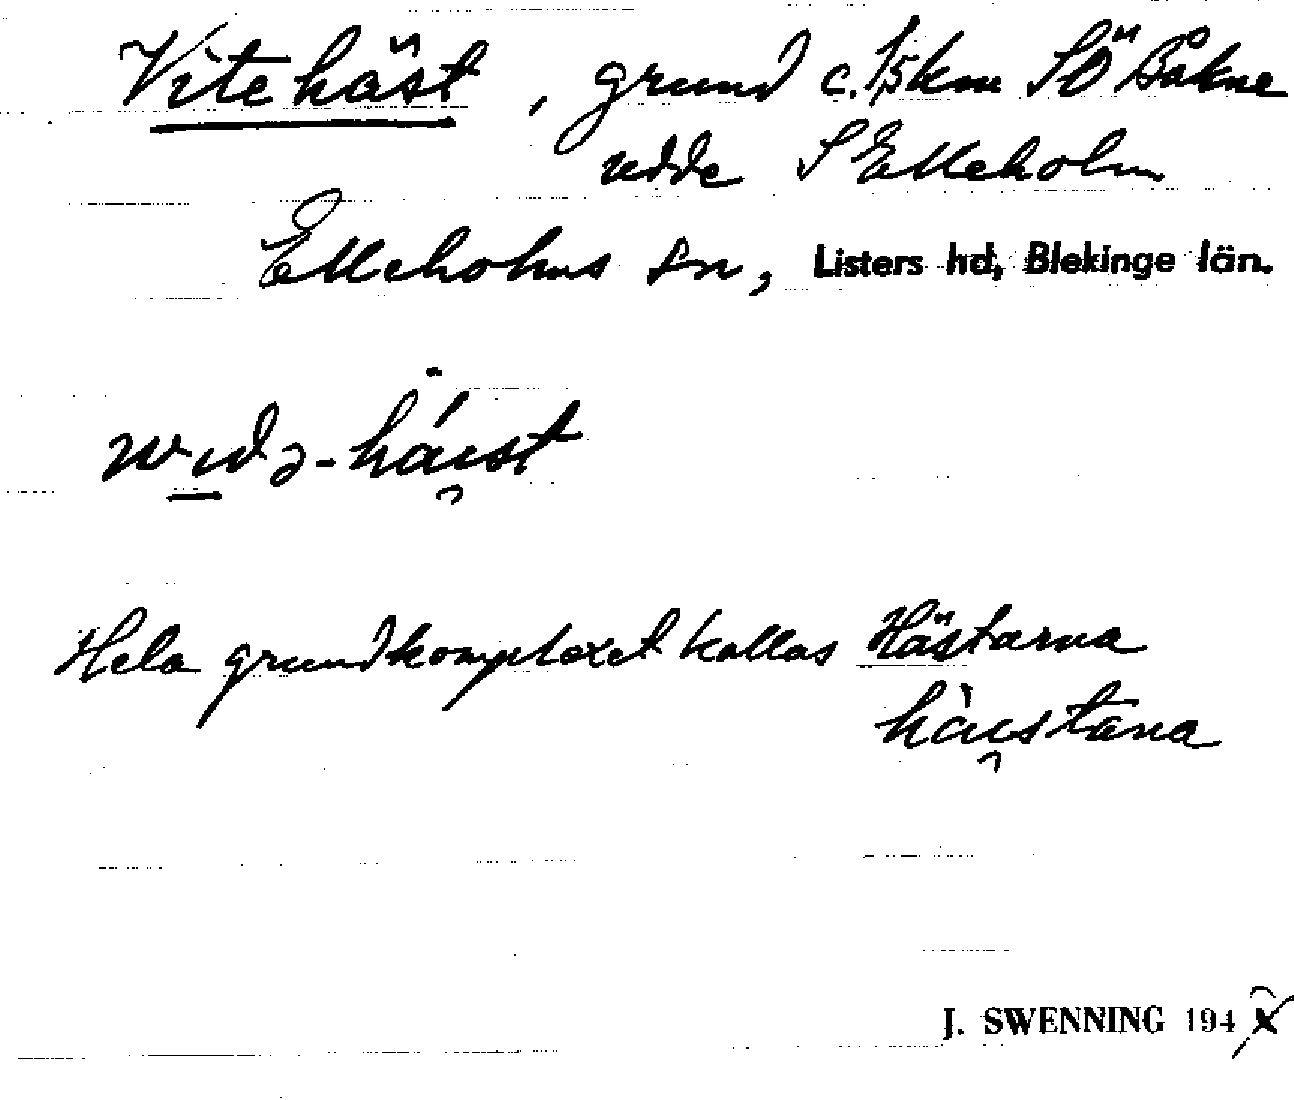 Vite häst, grund c. 1,5 km SÖ Båkne
udde S Elleholm
Elleholms sn, Listers hd, Blekinge län.
Hela grundkomplexet kallas Hästarna
J. SWENNING 194